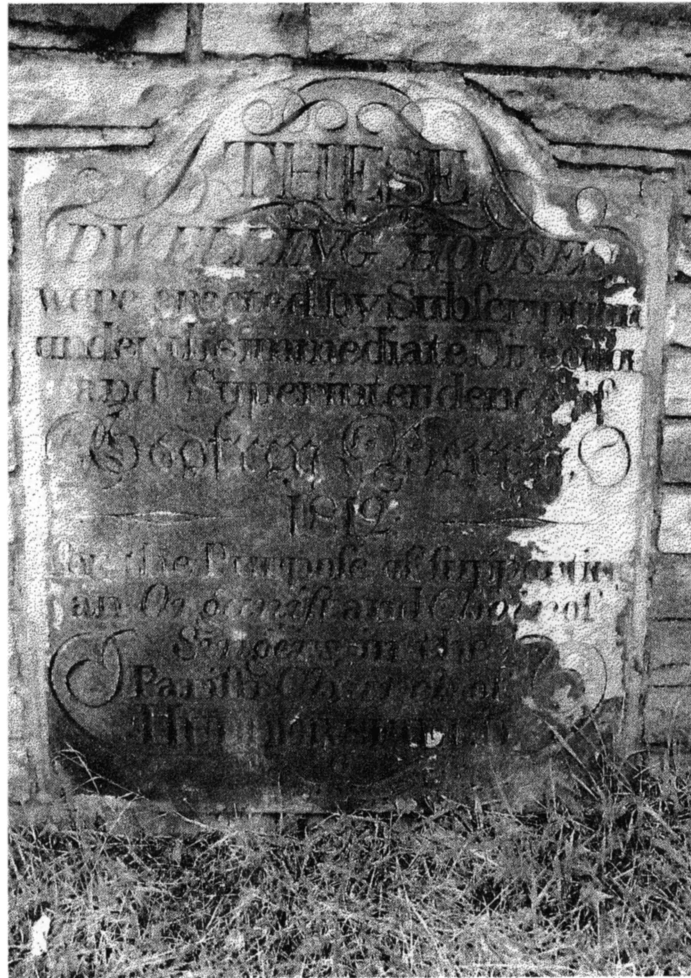 THESE
DWELLING HOUSES
were erected by Subſcription
under the immediate Direction
and Superintendence of
1812
for the Purpoſe of ſupporting
an Organiſt and Choir of
Singers in the
Pariſh Church of